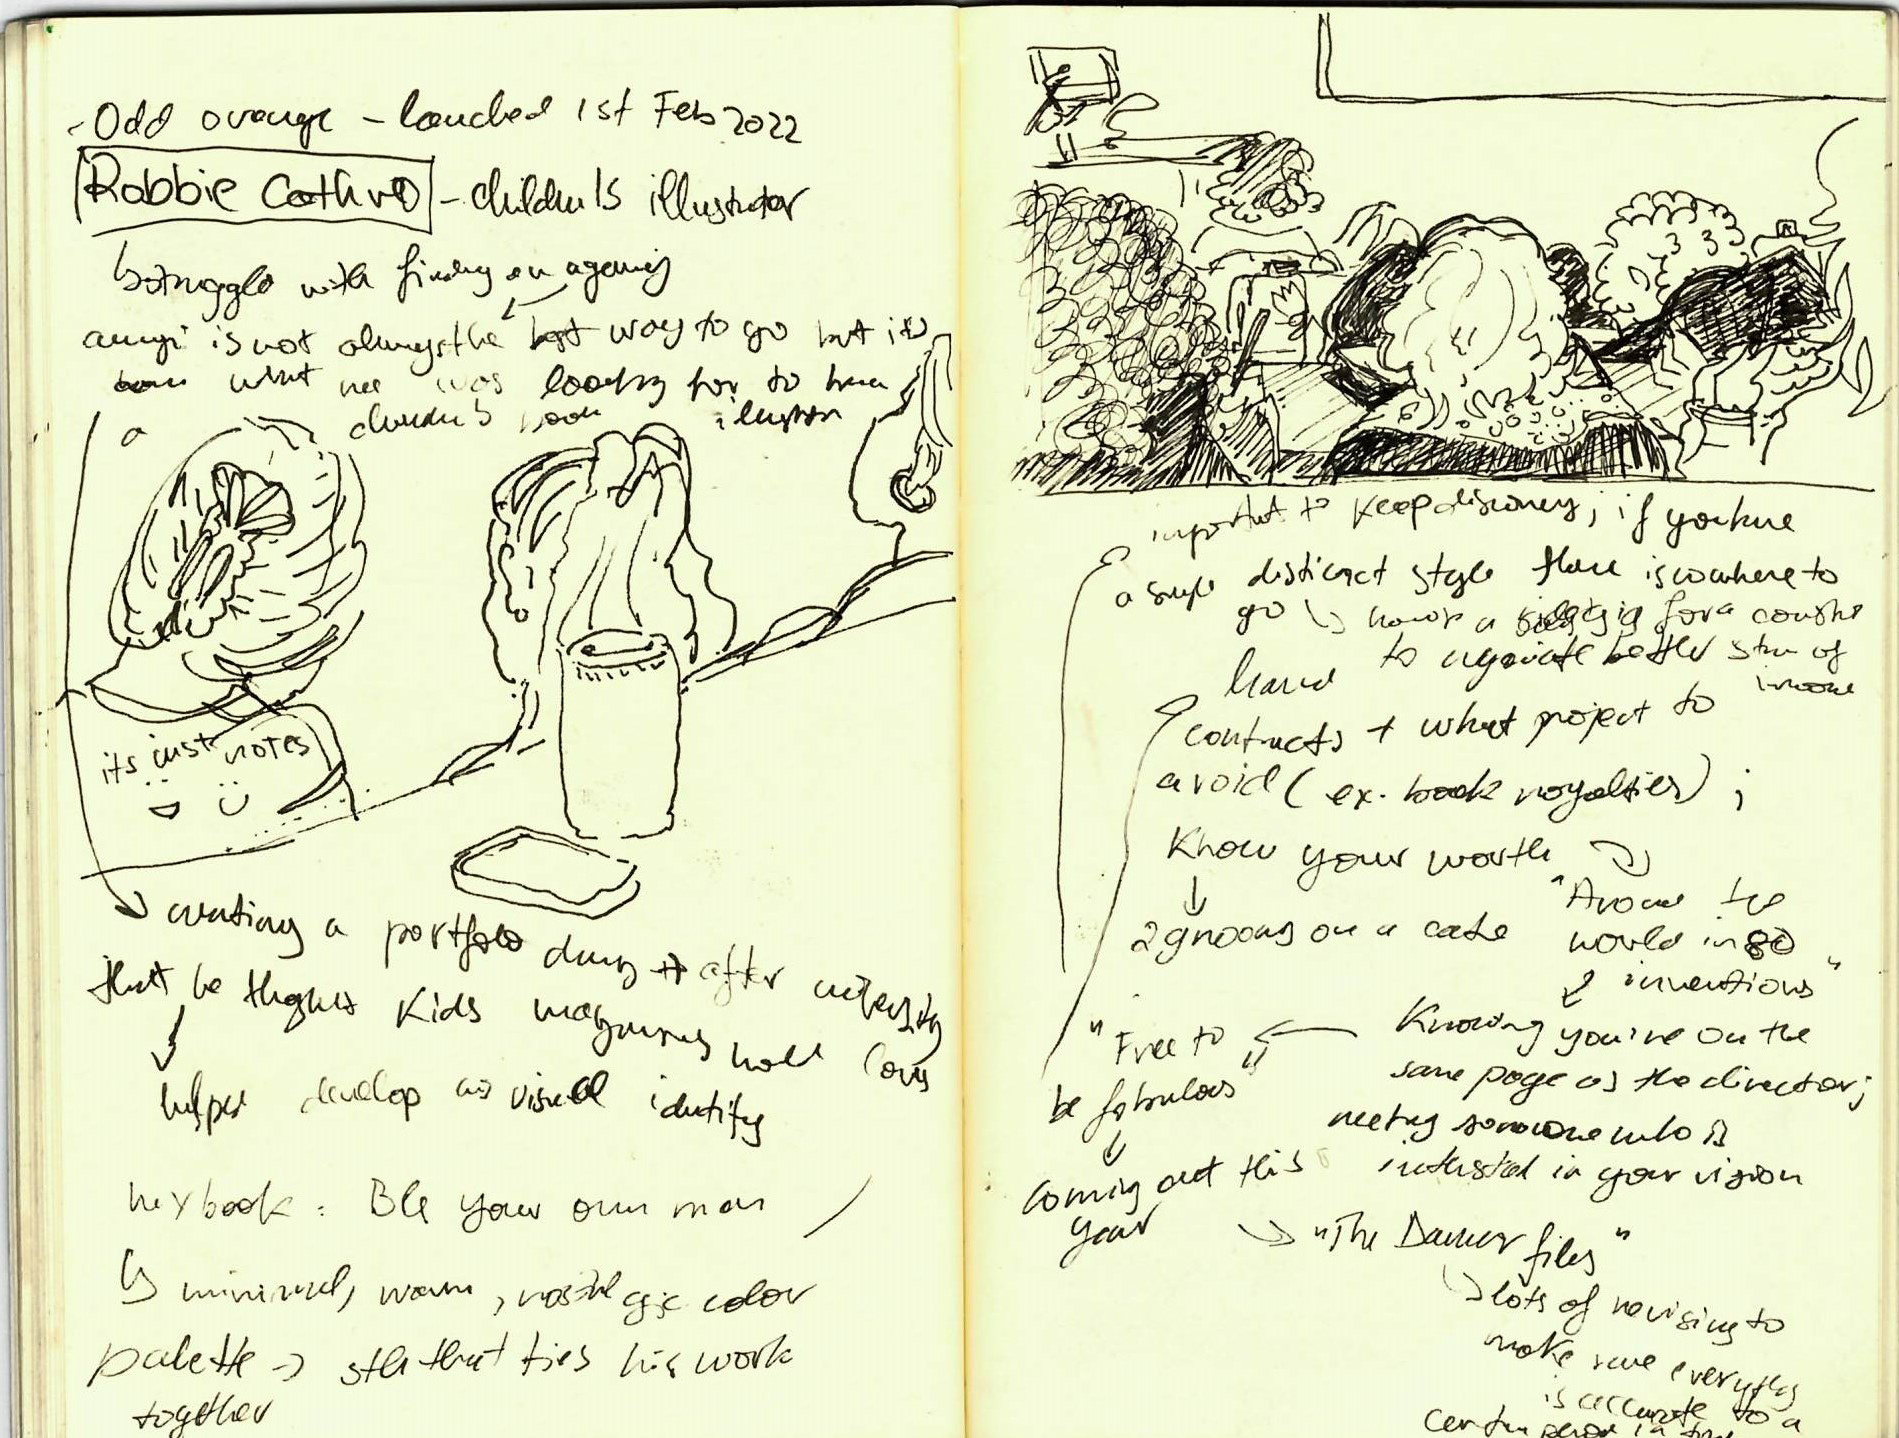 - Odd orange - lauched 1st Feb 2022
Robbie Cathro - children's illustrator
struggle with finding an agency
is not always the best way to go but it's
what he was looking for to
children's book
its just notes
creating a portfolio during + after university
that he thought kids magazines would love
helped develop his visual identity
his book : Ble your own man
minimal, warm, nostalgic color
palette → sth that ties his work
together
important to keep discovery; if you have
a single distinct style there is nowhere to
go ↳ work a side gig for a
to negotiate better
income
contracts + what project to
avoid (ex. book royalties) ;
Know your worth
"Around the
2 gnooms on a cake
world in 80
inventions"
Knowing you're on the
"Free to
same page as the director;
be fabulous"
meeting someone who is
coming out this
interested in your vision
year
"The Danger files"
lots of revising to
make sure everything
is accurate to a